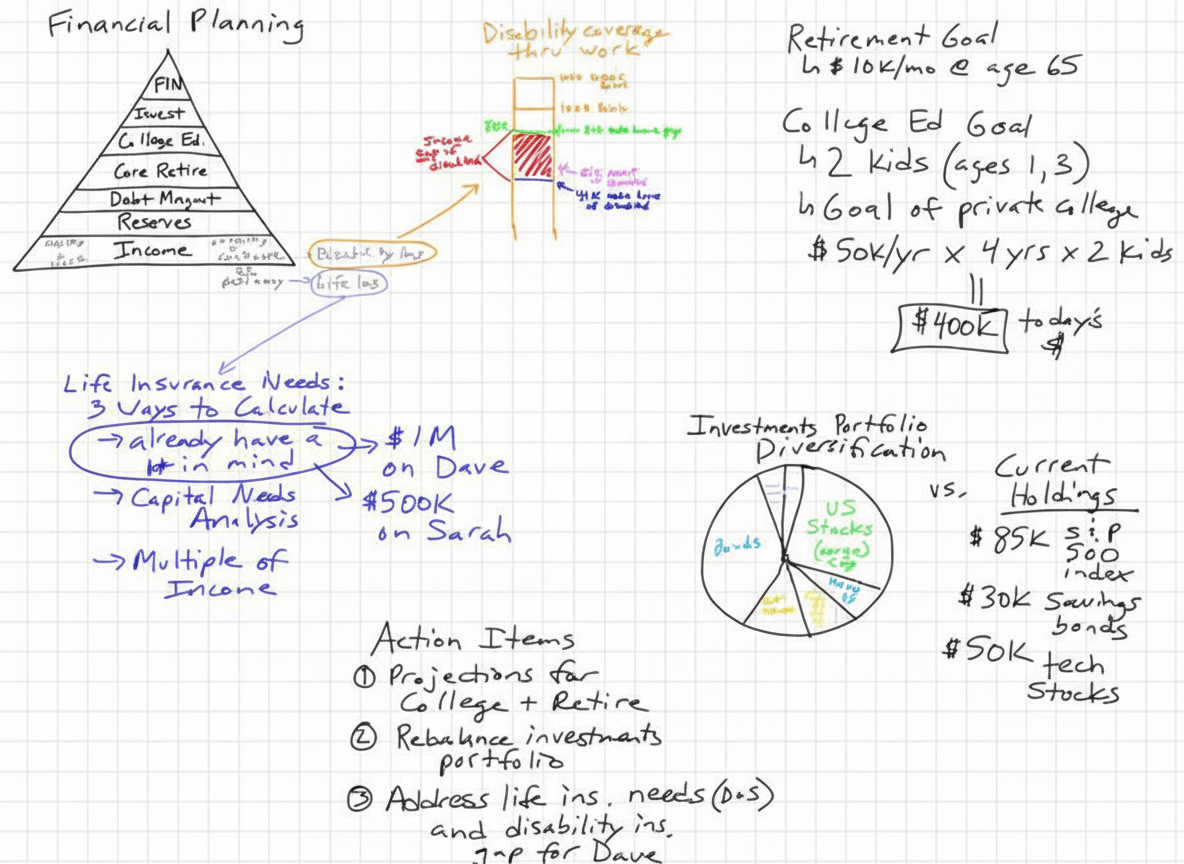 Financial Planning
FIN
Invest
College Ed.
Core Retire
Debt Mngmt
Reserves
Income
Life Ins
Disability coverage
thru work
Income
disabled
Retirement Goal
↳ $10K/mo @ age 65
College Ed Goal
↳ 2 Kids (ages 1, 3)
↳ Goal of private college
$50K/yr x 4 yrs x 2 Kids
||
$400K today's
$
Life Insurance Needs:
3 Ways to Calculate
→ already have a
# in mind
→ $1M
on Dave
$500K
on Sarah
→ Capital Needs
Analysis
→ Multiple of
Income
Investments Portfolio
Diversification
US
Stocks
(large)
Bonds
vs.
Current
Holdings
$85K S&P
500
index
$30K Savings
bonds
$50K tech
Stocks
Action Items
① Projections for
College + Retire
② Rebalance investments
portfolio
③ Address life ins. needs (D+S)
and disability ins.
gap for Dave